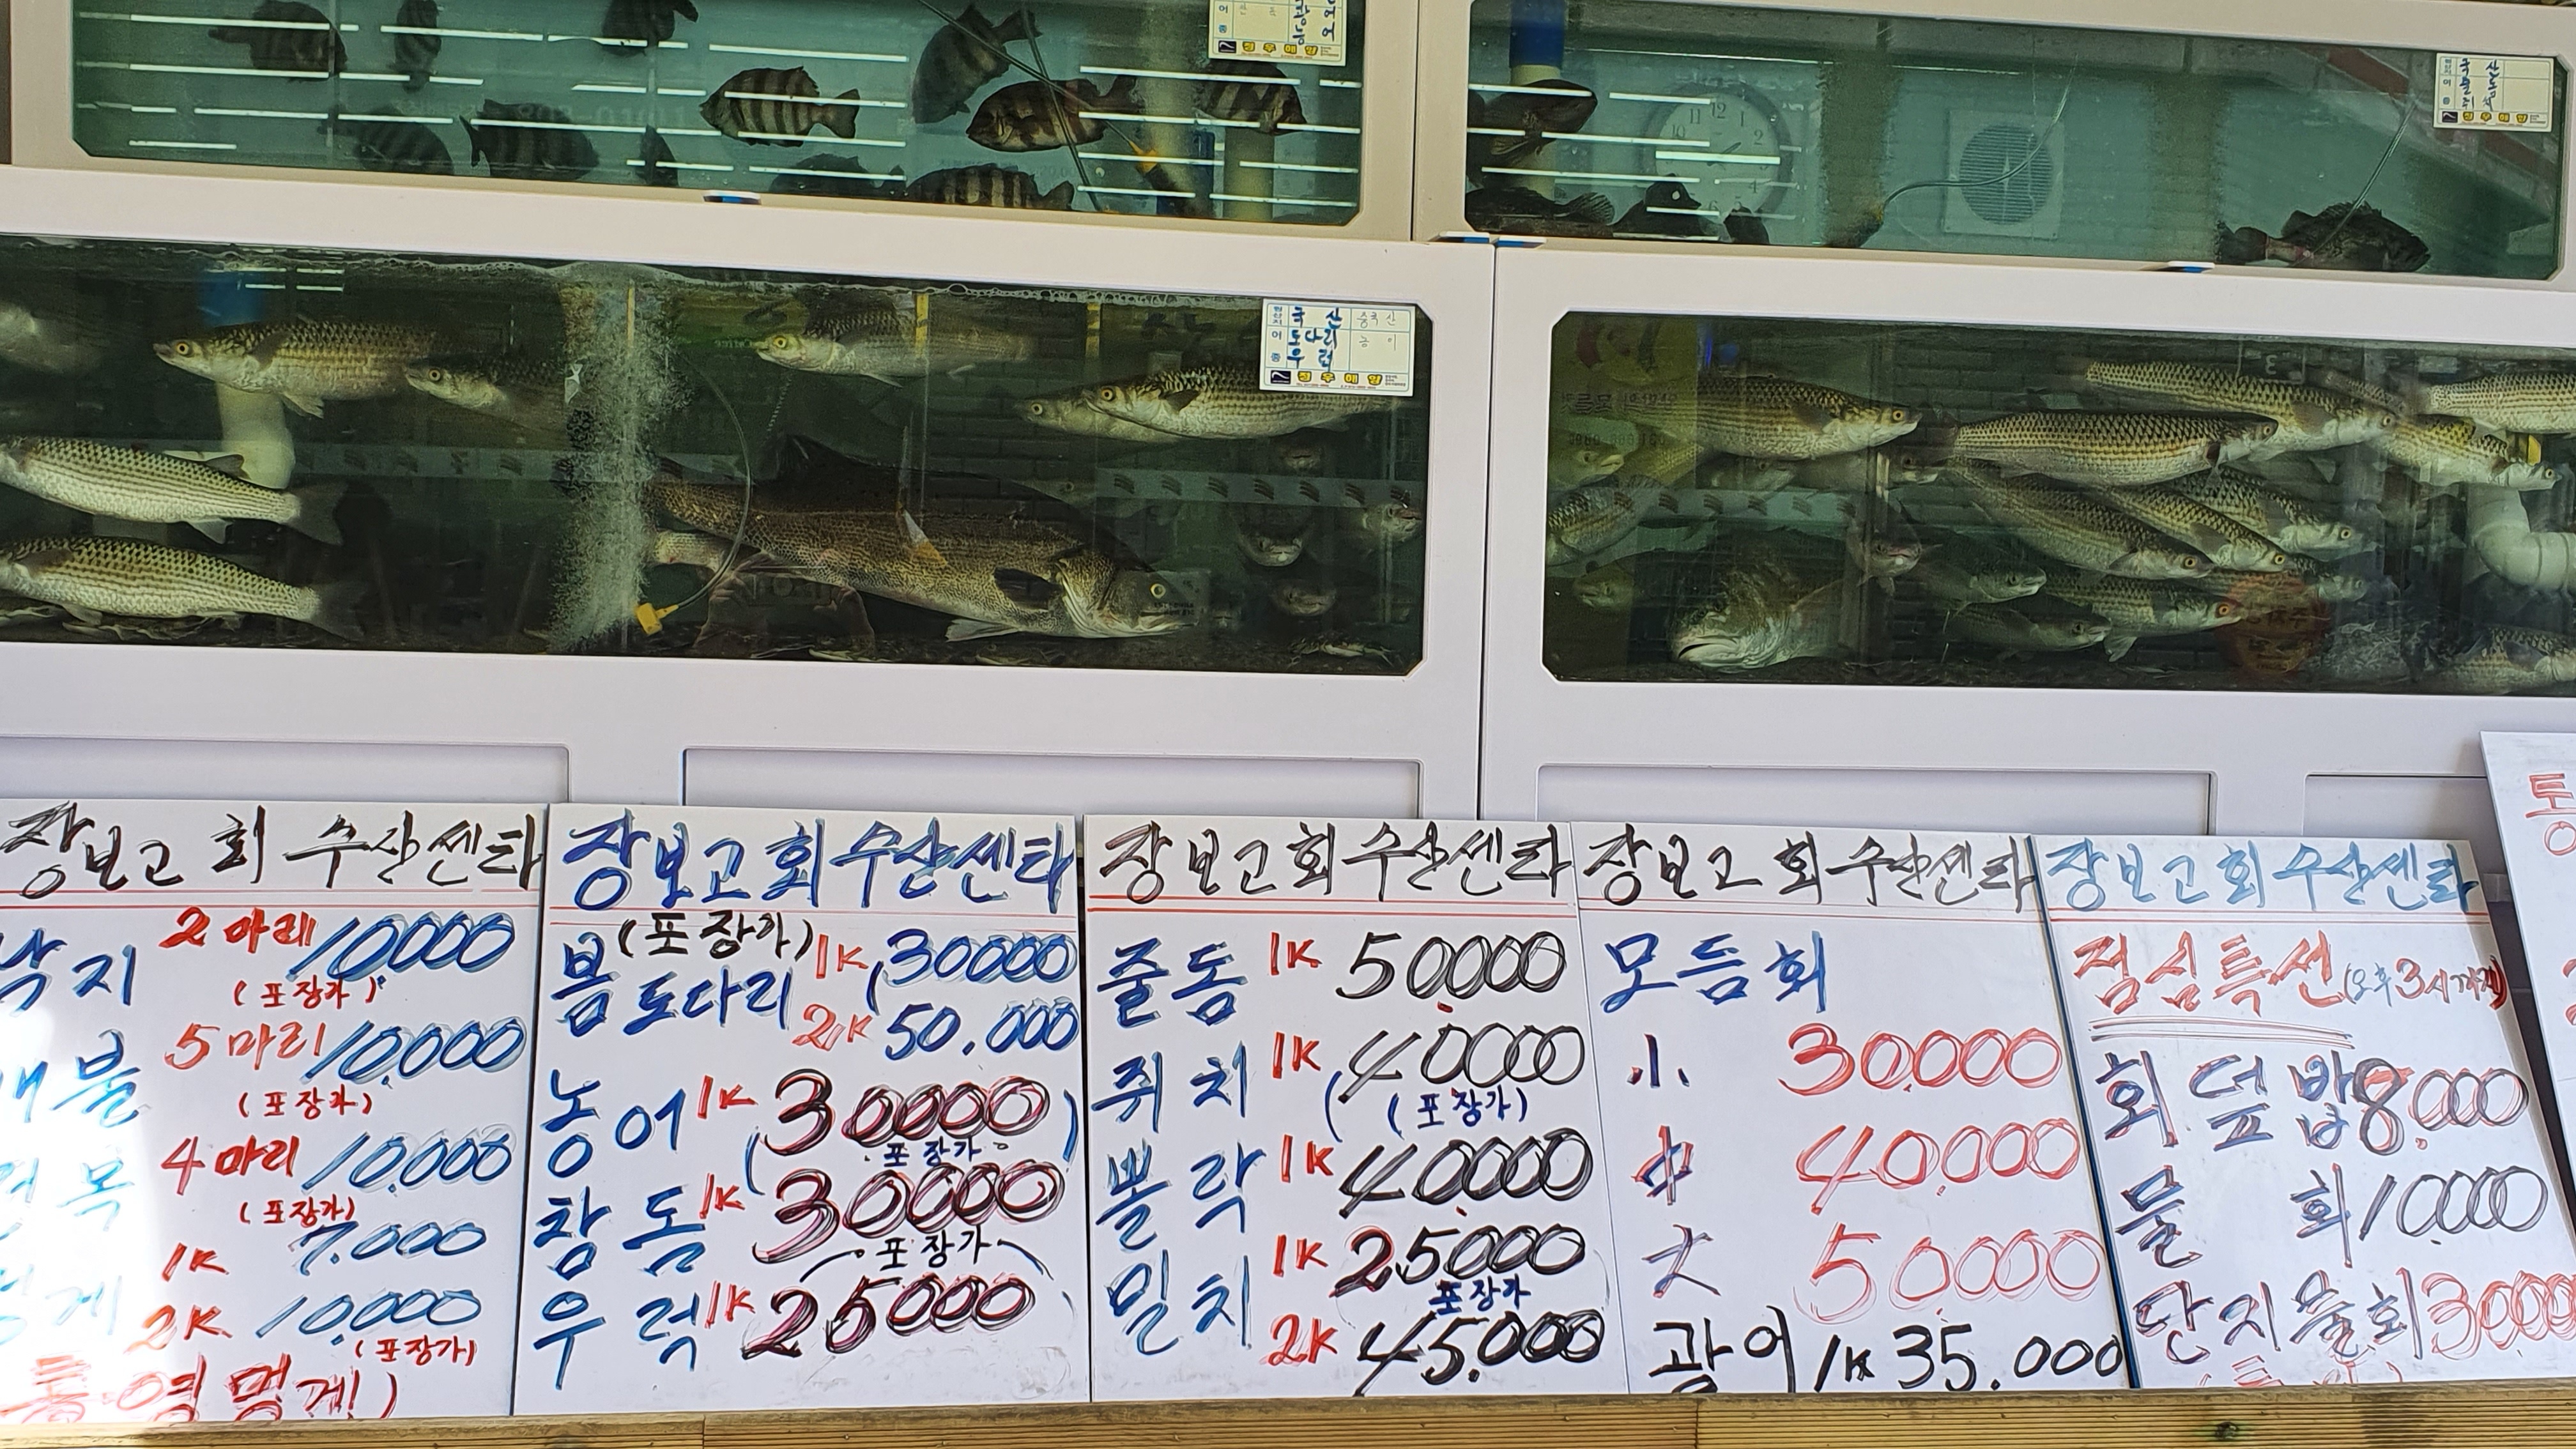 국 산
돌돔
쥐치
정우해양
국 산 중국산
도다리 농 어
우 럭
정우해양
장보고 회 수산센타
낙지 2마리 10,000
(포장가)
5마리 10,000
(포장가)
4마리 10,000
(포장가)
1K 7,000
2K 10,000
(포장가)
통영멍게!)
장보고회수산센타
(포장가)
봄도다리 1K (30000
2K 50.000
농어 1K 30000
포장가
참돔 1K 30000
포장가
우럭 1K 25000
장보고회수산센타
줄돔 1K 50,000
쥐치 1K 40000
(포장가)
뽈락 1K 40000
밀치 1K 25000
포장가
2K 45.000
장보고 회수산센타
모듬회
小 30,000
中 40,000
大 50000
광어 1K 35.000
장보고회수산센타
점심특선(오후3시까지)
회덮밥 8,000
물회 10,000
단지물회 30000
통